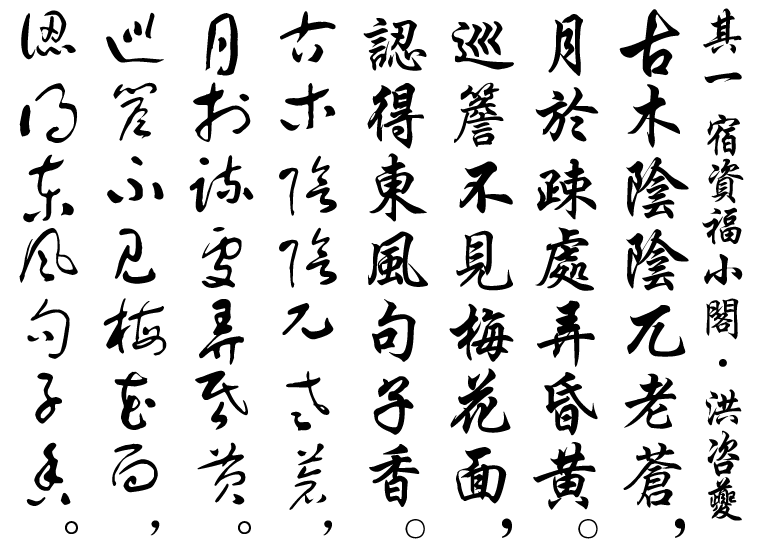 其一 宿資福小閣・洪咨夔
古木陰陰兀老蒼，
月於疎處弄昏黃。
巡簷不見梅花面，
認得東風句子香。
古木陰陰兀老蒼，
月於疎處弄昏黃。
巡簷不見梅花面，
認得東風句子香。